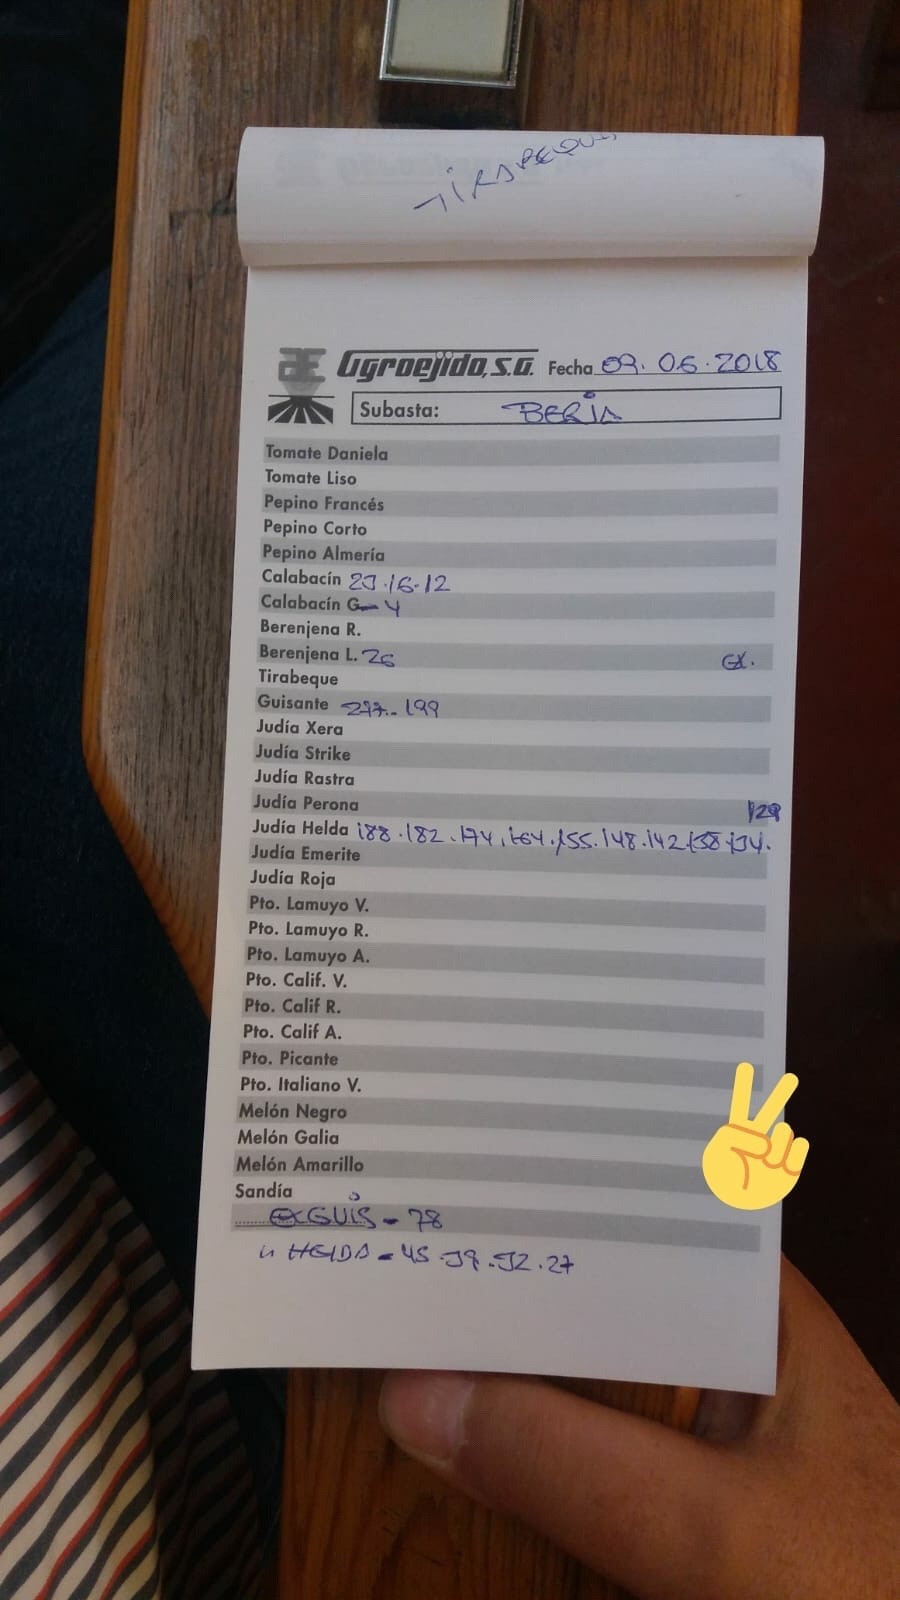 TIRABEQUE
Agroejido, S.A. Fecha 09.06.2018
Subasta: BERJA
Tomate Daniela
Tomate Liso
Pepino Francés
Pepino Corto
Pepino Almería
Calabacín 23.16.12
Calabacín G- 4
Berenjena R.
Berenjena L. 26 GX.
Tirabeque
Guisante 277.199
Judía Xera
Judía Strike
Judía Rastra
Judía Perona 129
Judía Helda 188.182.174.164.155.148.142.138.134.
Judía Emerite
Judía Roja
Pto. Lamuyo V.
Pto. Lamuyo R.
Pto. Lamuyo A.
Pto. Calif. V.
Pto. Calif R.
Pto. Calif A.
Pto. Picante
Pto. Italiano V.
Melón Negro
Melón Galia
Melón Amarillo
Sandía
GUIS - 78
" HELDA - 45.39.32.27